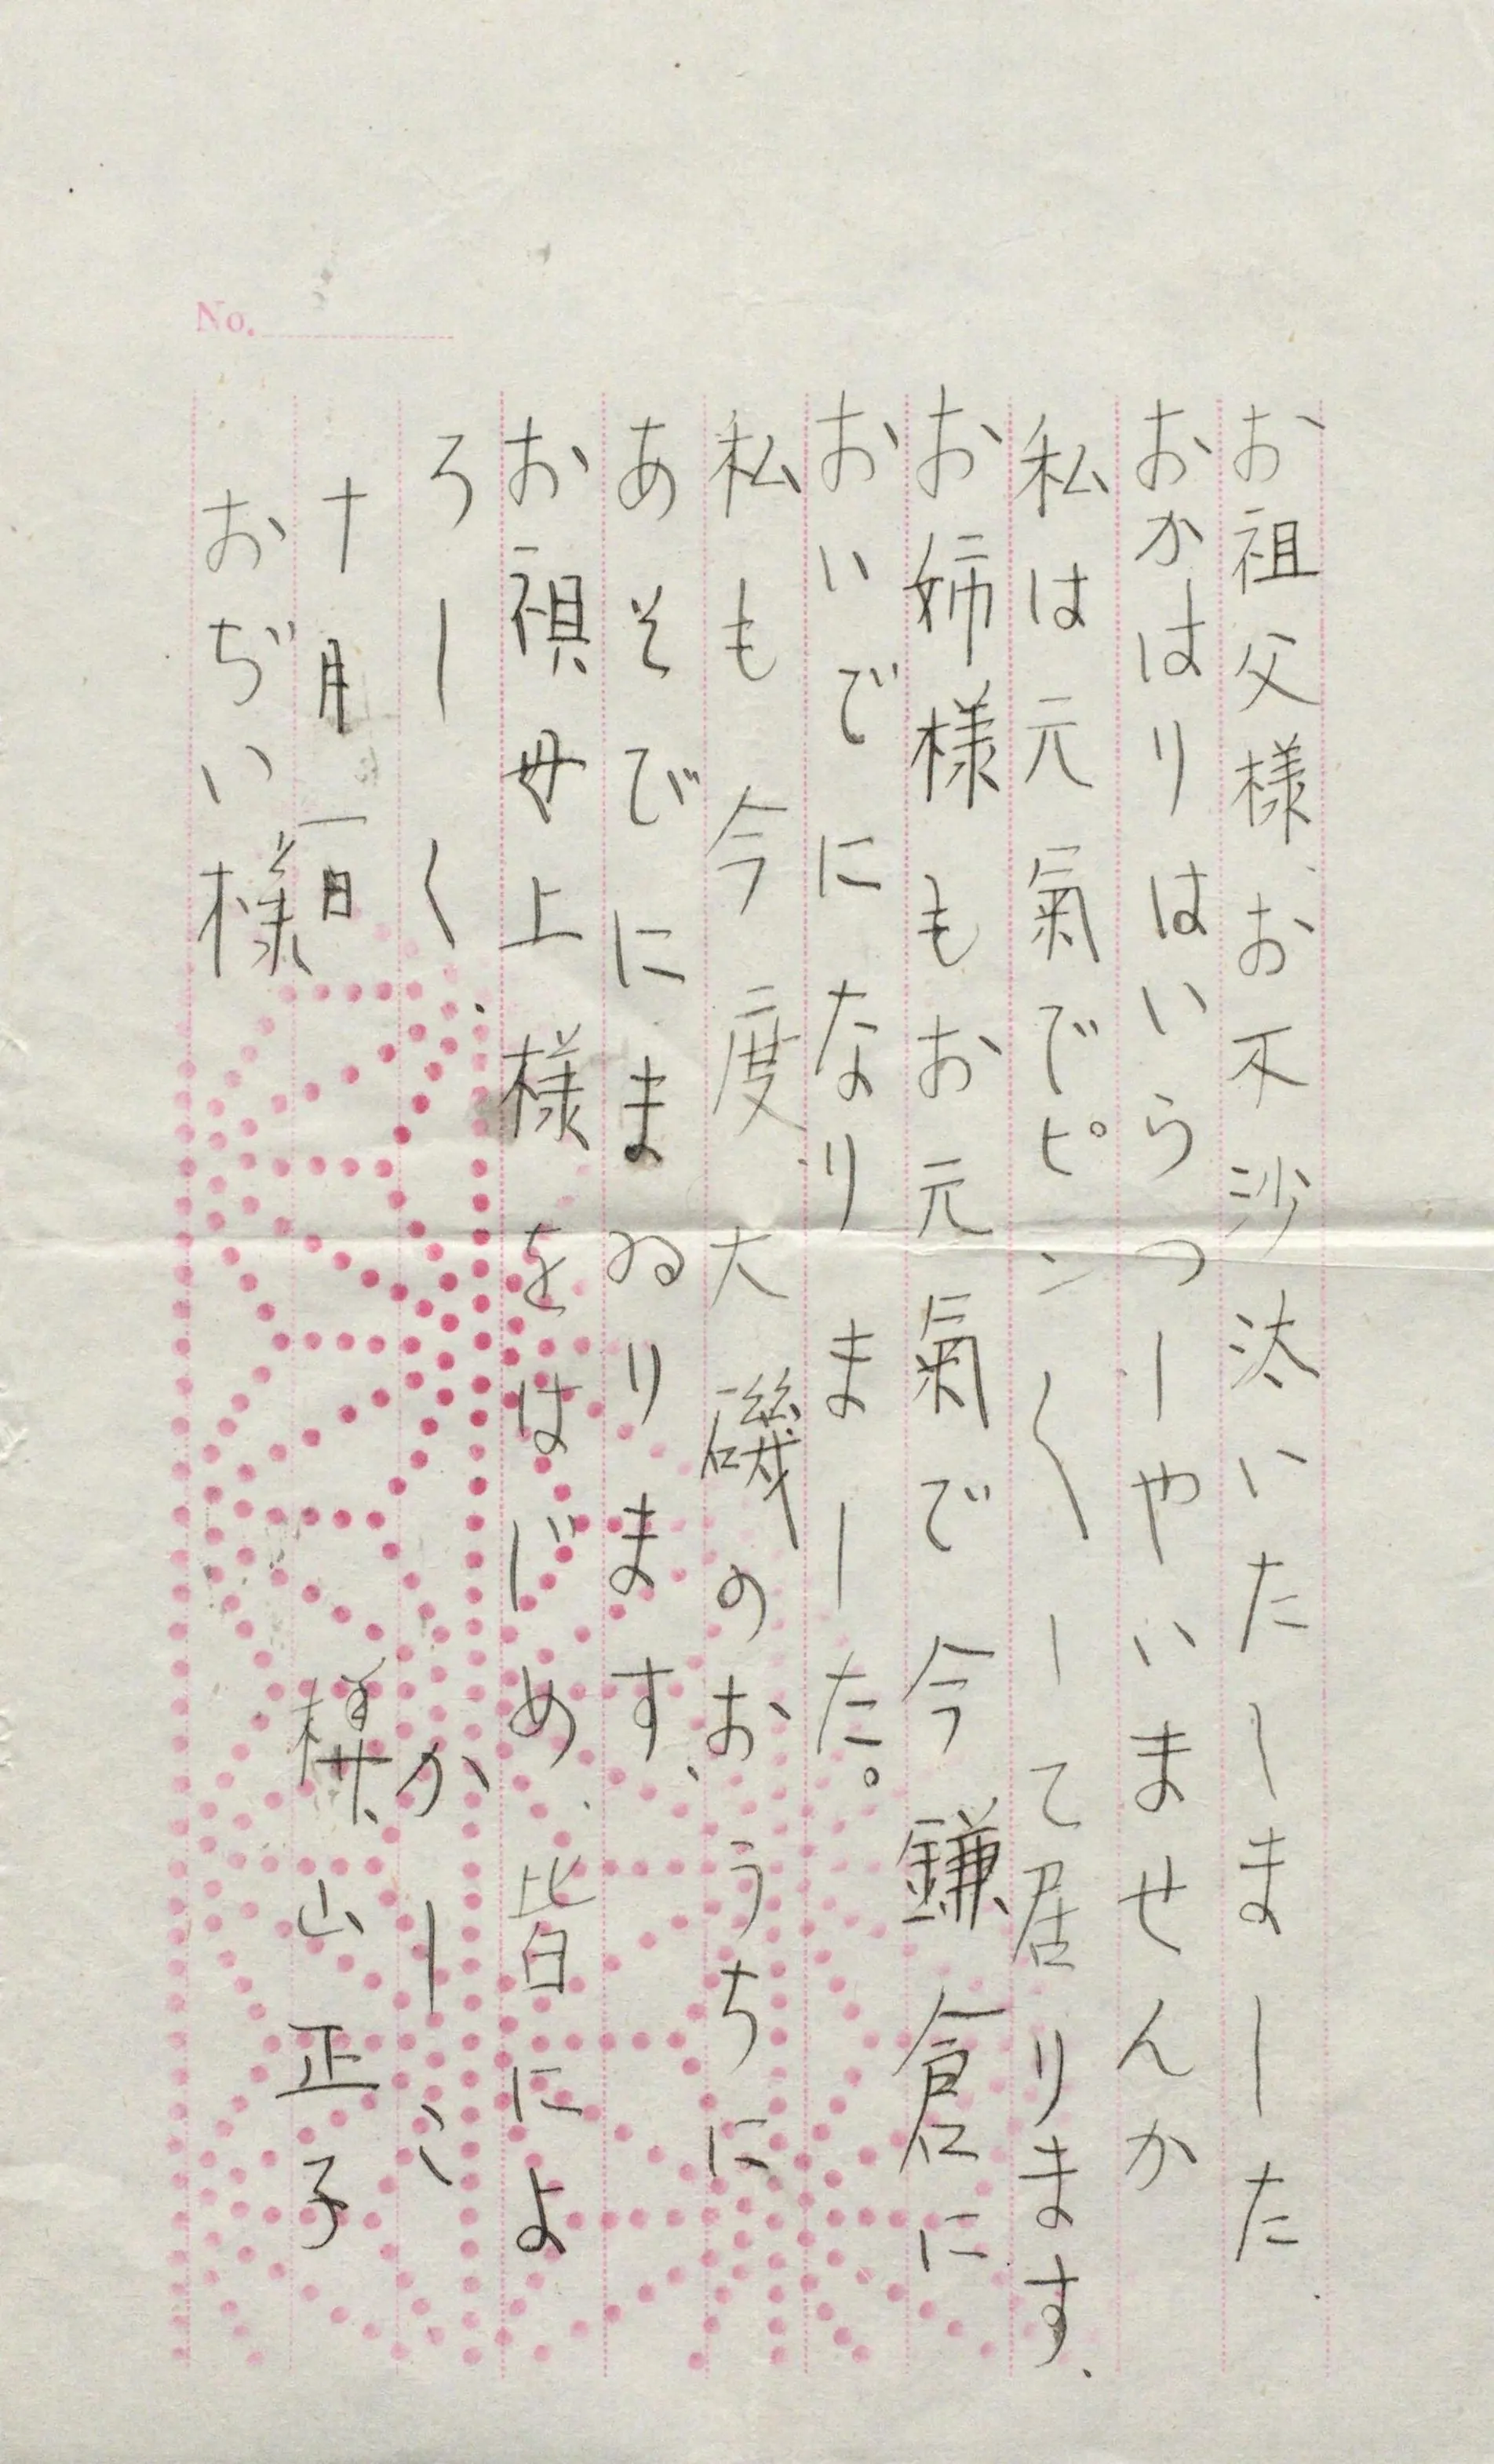 お祖父様、お不沙汰いたしました、
おかはりはいらつしやいませんか
私は元氣でピン〱して居ります、
お姉様もお元氣で今鎌倉に
おいでになりました。
私も今度、大磯のおうちに
あそびにまゐります、
お祖母上様をはじめ、皆によ
ろしく、かしこ
十月一日 横山正子
おぢい様
No.